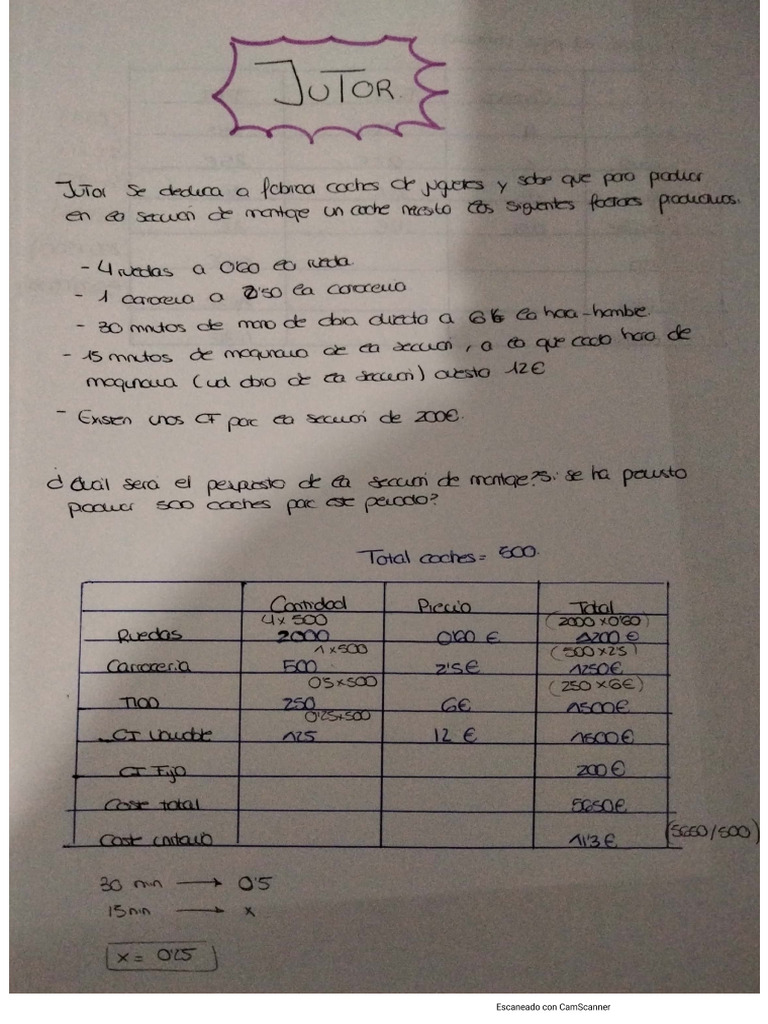 JUTOR
JUTOR se dedica a fabricar coches de juguetes y sabe que para producir
en la sección de montaje un coche necesita los siguientes factores productivos.
- 4 ruedas a 0'60 la rueda.
- 1 carrocería a 2'50 la carrocería
- 30 minutos de mano de obra directa a 6€ la hora-hombre.
- 15 minutos de maquinaria de la sección, a lo que cada hora de
maquinaria (ud obra de la sección) cuesta 12€
- Existen unos CI por la sección de 200€.
¿Cuál será el presupuesto de la sección de montaje? Si se ha previsto
producir 500 coches para este periodo?
Total coches = 500.
Cantidad Precio Total
4 x 500 (2000 x 0'60)
Ruedas 2000 0'60 € 1200 €
1 x 500 (500 x 2'5)
Carrocería 500 2'5€ 1250€
0'5 x 500 (250 x 6€)
MOD 250 6€ 1500€
0'25 x 500
CI Variable 125 12 € 1500€
CI Fijo 200 €
Coste total 5650€
Coste unitario 11'3€ (5650/500)
30 min → 0'5
15 min → x
x = 0'25
Escaneado con CamScanner